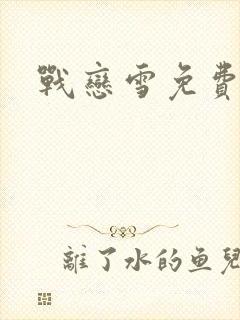 戰戀雪免費
離了水的鱼兒